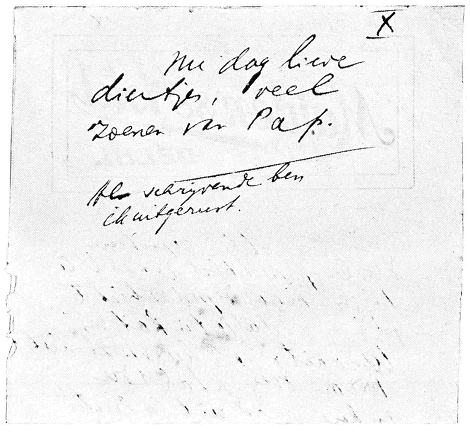 X
Nu dag lieve
diertjes, veel
zoenen van Pap.
Al schrijvende ben
ik uitgerust.